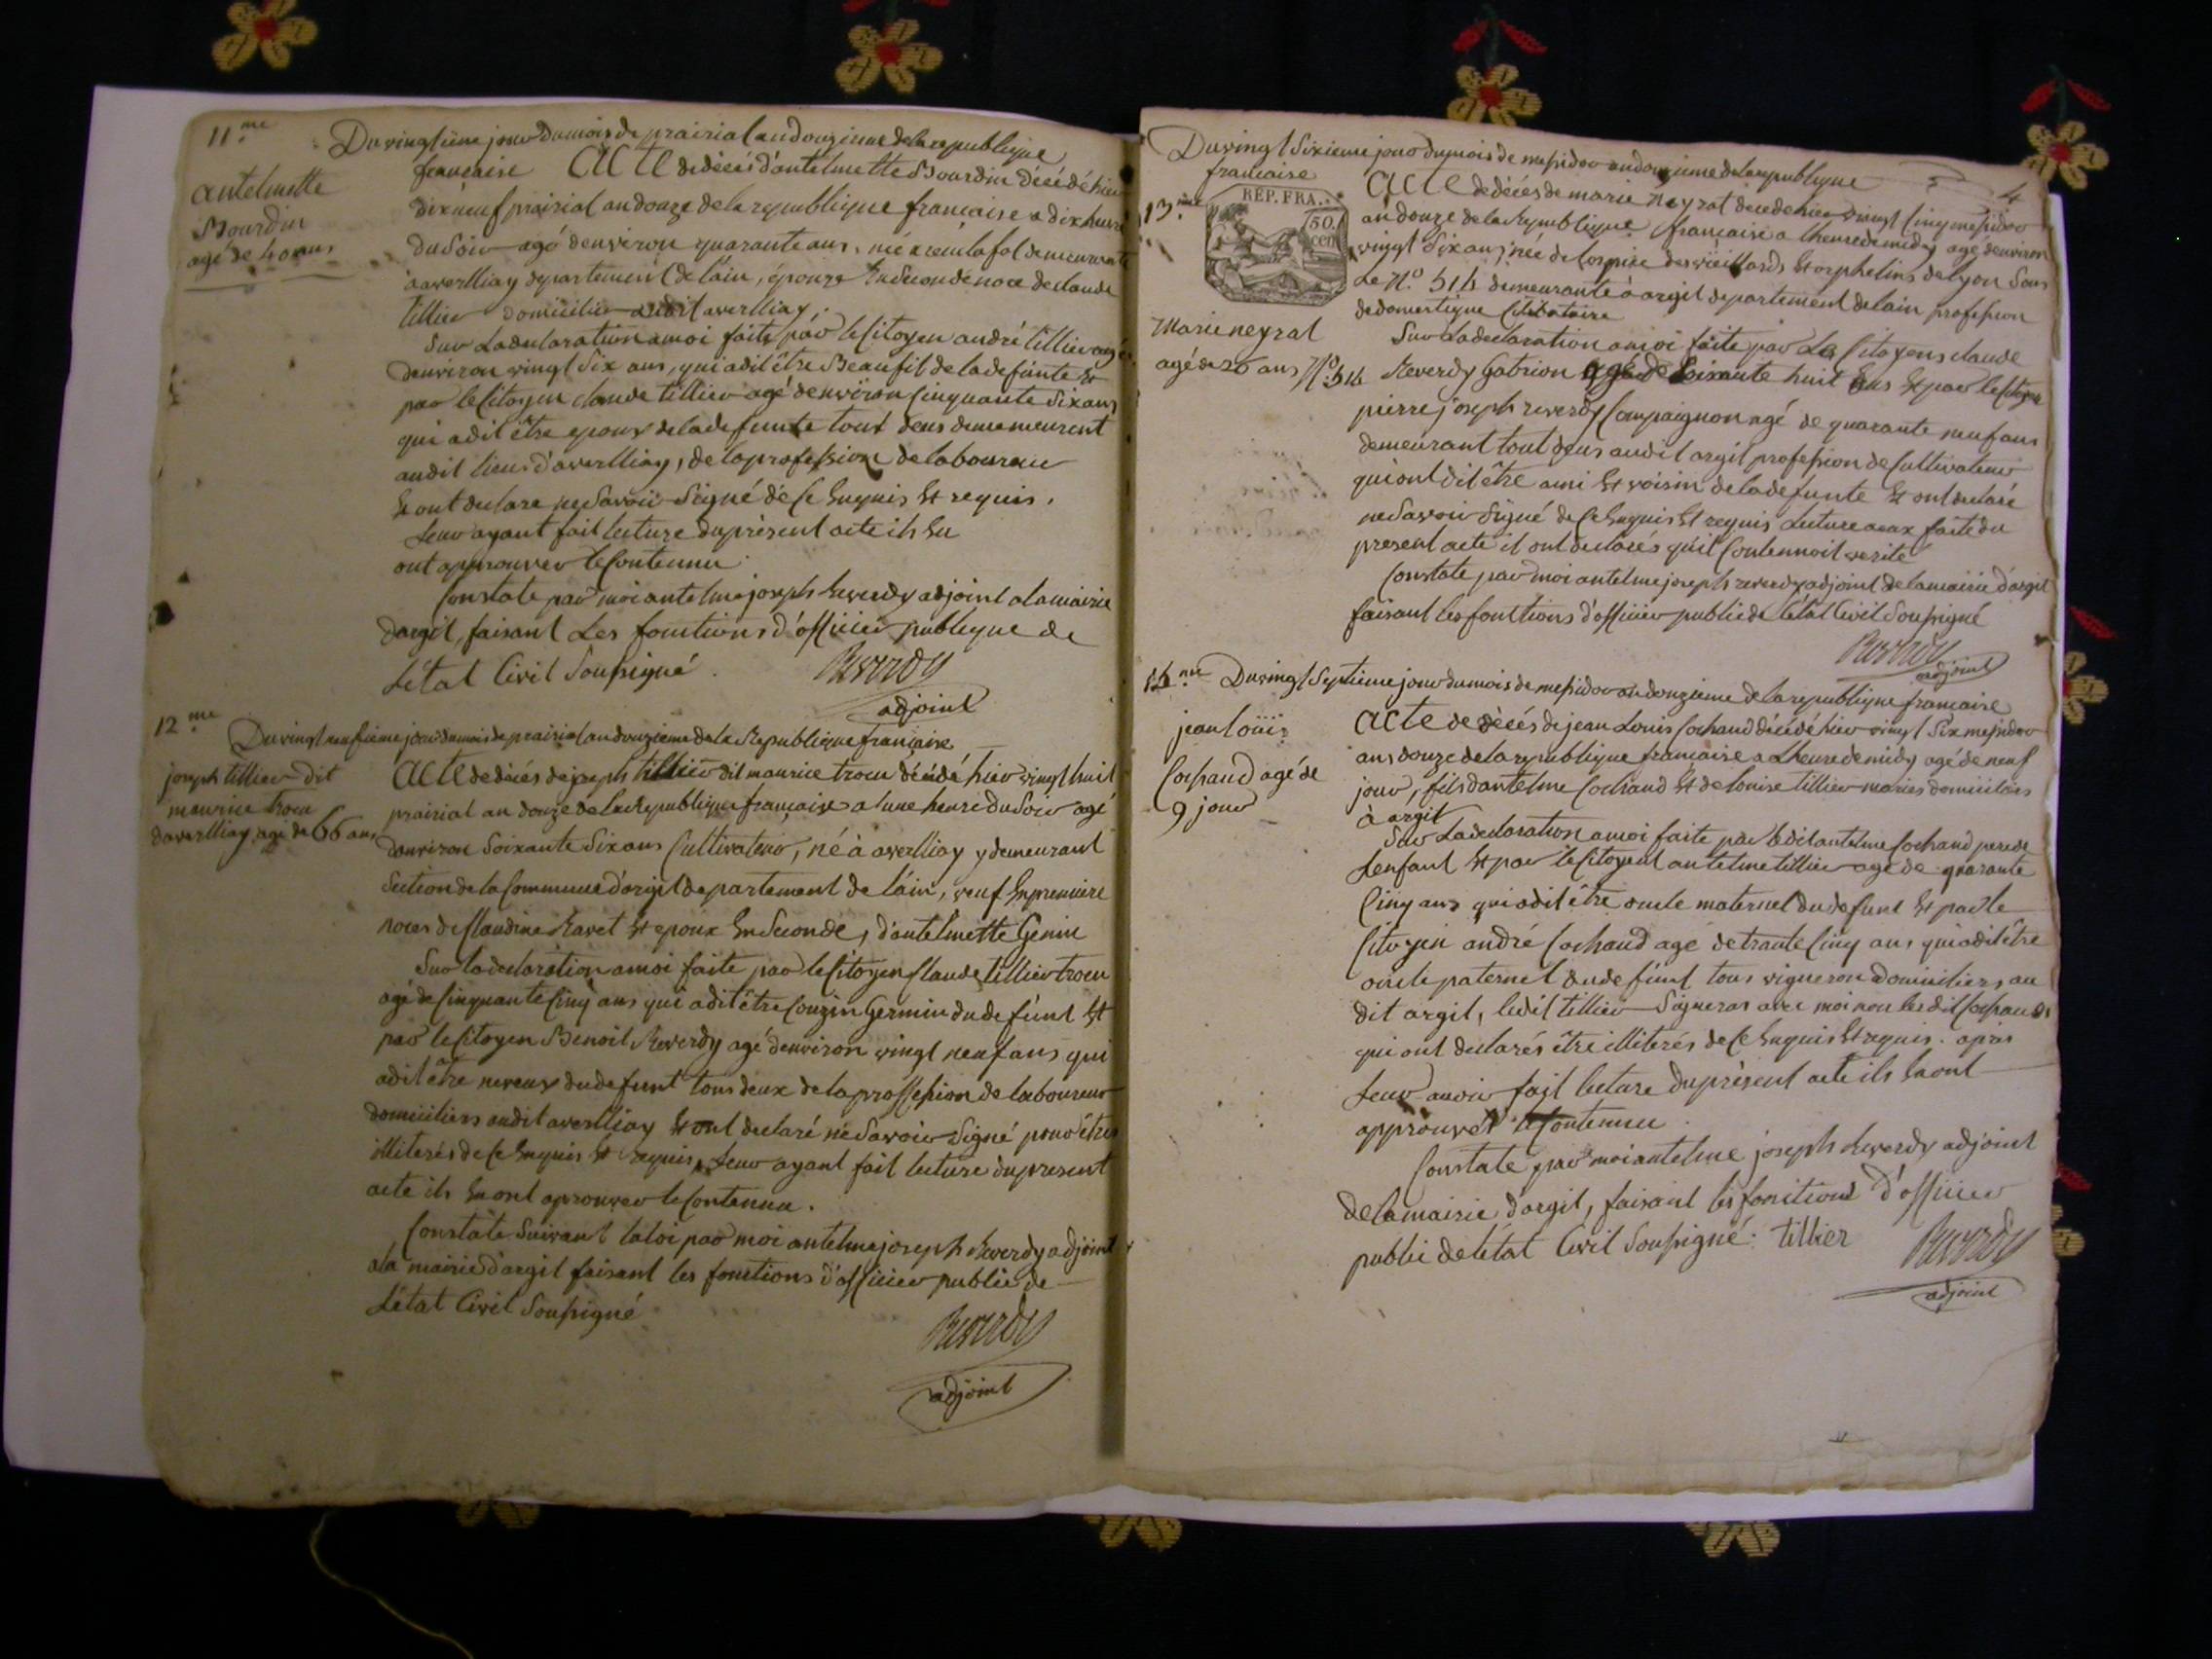 11.me
Du vingtieme jour du mois de prairial an douzieme de la republique
francaise Acte de décés d'antelmette Bourdin décédé hier
antelmette
Bourdin
agé de 40 ans
dix neuf prairial an douze de la republique francaise a dix heures
du soir agé d'environ quarante ans, né a demeurante
à averlliay departement de l'ain, épouze En seconde noce de claude
tillier domicilier audit averlliay.
Sur La declaration a moi faite par le Citoyen andré tillier agé
denviron vingt Six ans, qui adit être Beaufil de la defunte Et
par le Citoyen claude tillier agé denviron Cinquante Six ans
qui adit être epoux de la defunte tout deus demeurent
audit lieus d'averlliay, de la profession de laboureur
Et ont declare ne Savoir Signé de Ce Enquis Et requis,
Leur ayant fait lecture du présent acte ils En
ont approuver le Contennu
Constate par moi antelme joseph Reverdy adjoint a la mairie
dargil, faisant Les fonctions d'officier publique de
L'état Civil Soussigné.
Reverdy
adjoint
12.me
Du vingt neufieme jour du mois de prairial an douzieme de la Republique francaise
joseph tillier dit
maurice trocu
daverlliay agé de 66 ans
Acte de décés de joseph tillier dit maurice trocu décédé hier vingt huit
prairial an douze de la Republique française a lune heure du Soir agé
denviron Soixante Six ans Cultivateur, né à averlliay y demeurant
Section de la Commune d'argil departement de l'ain, veuf En premiere
noces de Claudine Ravet Et epoux En Seconde, d'antelmette Genin
Sur la declaration a moi faite par le Citoyen Claude tillier trocu
agé de Cinquante Cinq ans qui adit être Couzin Germin du defúnt Et
par le Citoyen Benoit Reverdy agé denviron vingt neuf ans qui
adit être neveux du defunt tous deux de la proffession de laboureur
domiciliers audit averlliay Et ont declaré ne Savoir Signé pour être
illiterés de Ce Enquis Et requis, Leur ayant fait lecture du present
acte ils En ont aprouver le Contennu.
Constate Suivant la loi par moi antelme joseph Reverdy adjoint
a la mairie d'argil faisant les fonctions d'officier public de
L'état Civil Soussigné
Reverdy
adjoint
4
Du vingt Sixieme jour du mois de messidor an douzieme de la republique
francaise
13.me
REP. FRA.
50.
cen
Acte de décés de marie neyrat decede hier vingt Cinq messidor
an douze de la Republique francaise a lheure de midy agé denviron
vingt Six ans, née de lospice des vieillards Et orphelins de lyon Sous
Le No. 514 demeurante à argil departement de lain profession
de domestique Célibataire
Marie neyrat
agé de 26 ans No. 514
Sur La declaration a moi faite par Les Citoyens claude
Reverdy Gabrion agé de Soixante huit ans Et par le Citoyen
pierre joseph reverdy Compaignon agé de quarante neuf ans
demeurant tout deus audit argil profession de Cultivateur
qui ont dit être ami Et voisin de la defunte Et ont declaré
ne Savoir Signé de Ce Enquis Et requis Lecture a eux faite du
present acte il ont declarés quil Contennoit verité
Constate par moi antelme joseph reverdy adjoint de la mairie d'argil
faisant les fonctions d'officier public de l'état Civil Soussigné
Reverdy
adjoint
14.me
Du vingt Septieme jour du mois de messidor an douzieme de la republique francaise
jean loüis
Cochand agé de
9 jour
Acte de décés de jean Louis Cochand décédé hier vingt Six messidor
ans douze de la republique francaise a Lheure de midy agé de neuf
jour, fils dantelme Cochand Et de louise tillier mariés domiciliers
à argil
Sur La declaration a moi faite par ledit antelme Cochand pere de
Lenfant Et par le Citoyent antelme tillier agé de quarante
Cinq ans qui adit être oncle maternel du defunt Et par le
Citoyen andré Cochand agé de trante Cinq ans qui adit être
oncle paternel du defúnt tous vigneron domiciliers au
dit argil, ledit tillier Signeras avec moi non les dit Cochands
qui ont declarés être illiterés de Ce Enquis Et requis. apres
Leur avoir fait lecture du présent acte ils En ont
approuver le Contennu.
Constate par moi antelme joseph Reverdy adjoint
de la mairie d'argil, faisant les fonctions d'officier
public de l'état Civil Soussigné. tillier
Reverdy
adjoint